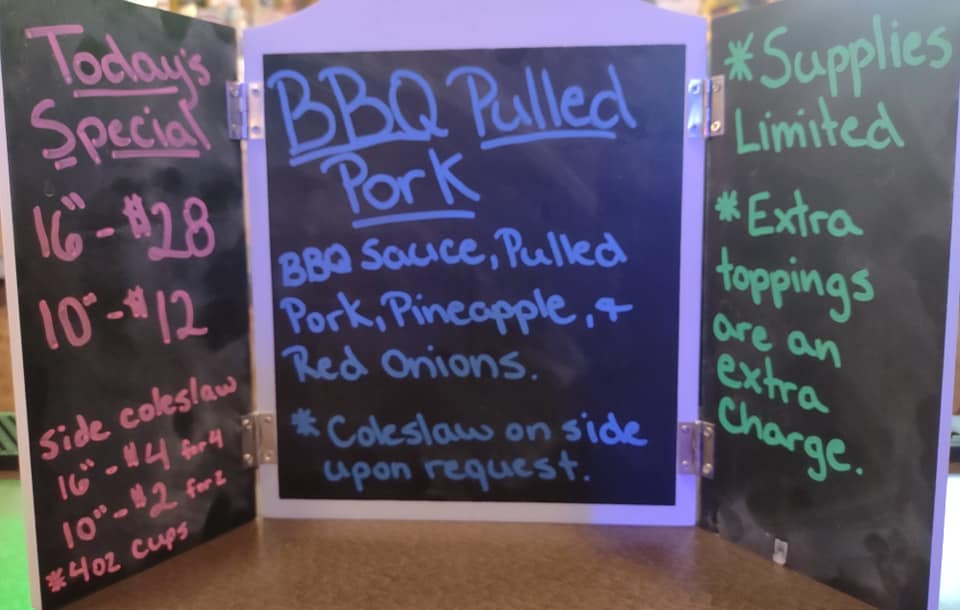 Today's
Special
16" - $28
10" - $12
side coleslaw
16" - $4 for 4
10" - $2 for 2
*4oz cups
BBQ Pulled
Pork
BBQ Sauce, Pulled
Pork, Pineapple, &
Red Onions.
* Coleslaw on side
upon request.
*Supplies
Limited
*Extra
toppings
are an
extra
Charge.